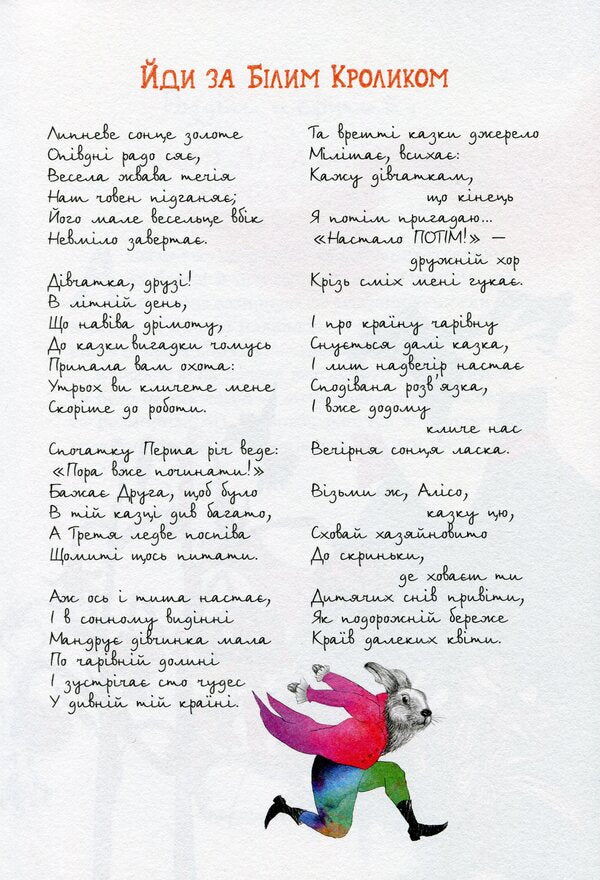 Йди за Білим Кроликом
Липневе сонце золоте
Опівдні радо сяє,
Весела жвава течія
Наш човен підганяє;
Його мале весельце вбік
Невміло завертає.
Дівчатка, друзі!
В літній день,
Що навіва дрімоту,
До казки вигадки чомусь
Припала вам охота:
Утрьох ви кличете мене
Скоріше до роботи.
Спочатку Перша річ веде:
«Пора вже починати!»
Бажає Друга, щоб було
В тій казці див багато,
А Третя ледве поспіва
Щомиті щось питати.
Аж ось і тиша настає,
І в сонному видінні
Мандрує дівчинка мала
По чарівній долині
І зустрічає сто чудес
У дивній тій країні.
Та врешті казки джерело
Мілішає, всихає:
Кажу дівчаткам,
що кінець
Я потім пригадаю...
«Настало ПОТІМ!» —
дружній хор
Крізь сміх мені гукає.
І про країну чарівну
Снується далі казка,
І лиш надвечір настає
Сподівана розв'язка,
І вже додому
кличе нас
Вечірня сонця ласка.
Візьми ж, Алісо,
казку цю,
Сховай хазяйновито
До скриньки,
де ховаєш ти
Дитячих снів привіти,
Як подорожній береже
Країв далеких квіти.